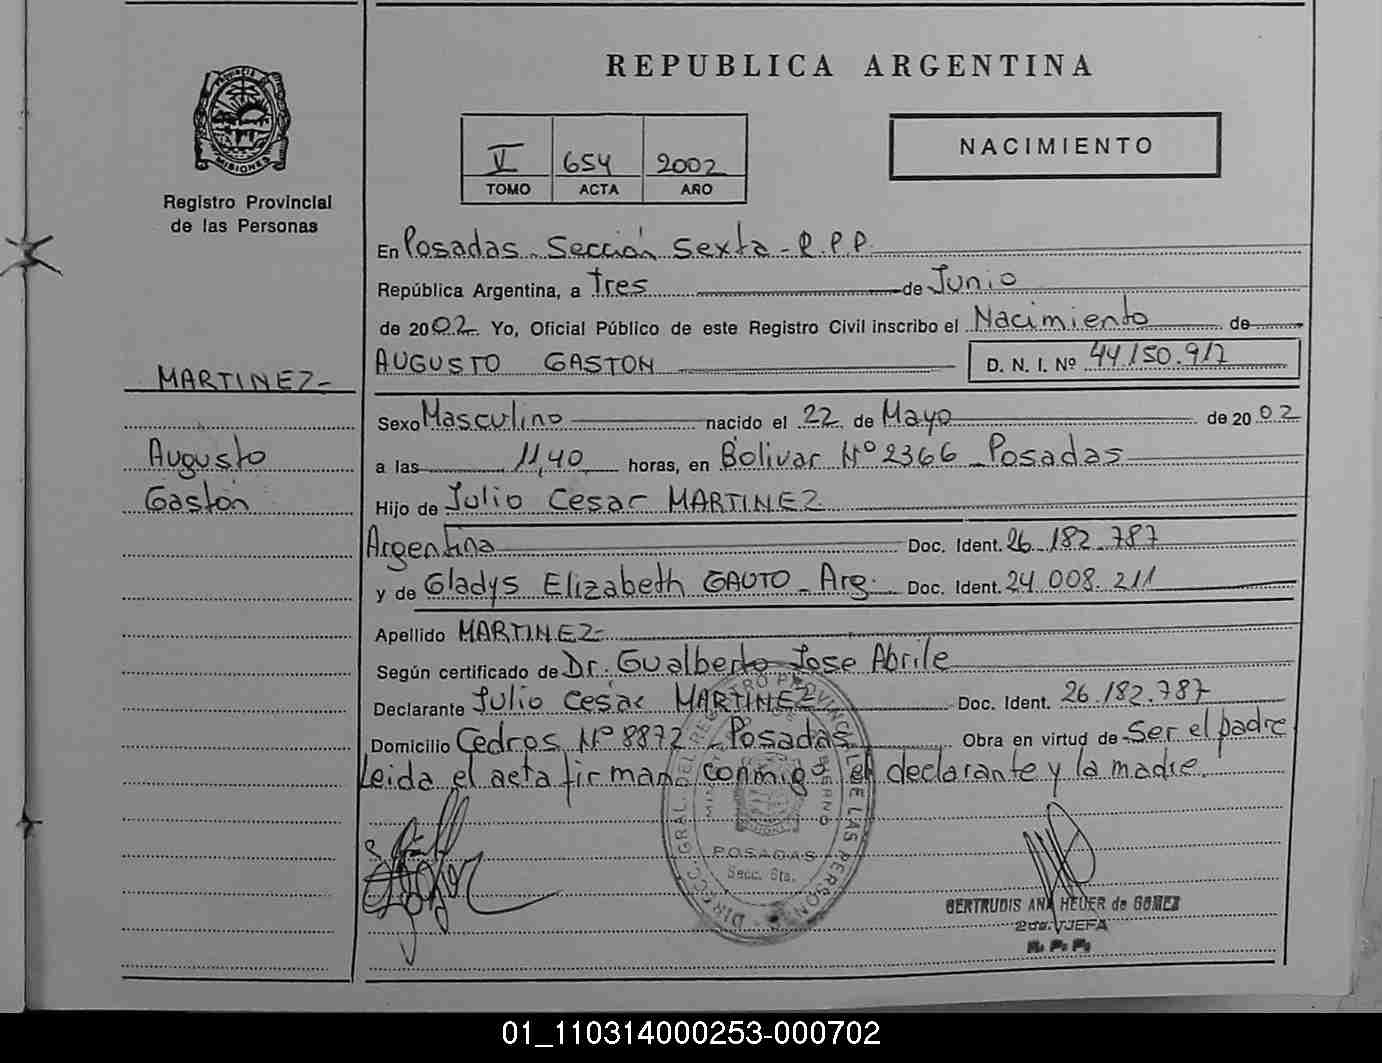 REPUBLICA ARGENTINA
PROVINCIA DE
MISIONES
Registro Provincial
de las Personas
V 654 2002
TOMO ACTA AÑO
NACIMIENTO
En Posadas - Sección Sexta - R.P.P.
República Argentina, a tres de Junio
de 2002 Yo, Oficial Público de este Registro Civil inscribo el Nacimiento de
AUGUSTO GASTON D. N. I. Nº 44.150.917
MARTINEZ-
Augusto
Gastón
Sexo Masculino nacido el 22 de Mayo de 2002
a las 11,40 horas, en Bolivar Nº 2366 - Posadas
Hijo de Julio Cesar MARTINEZ
Argentina Doc. Ident. 26.182.787
y de Gladys Elizabeth GAUTO - Arg. Doc. Ident. 24.008.211
Apellido MARTINEZ-
Según certificado de Dr. Gualberto Jose Abrile
Declarante Julio Cesar MARTINEZ Doc. Ident. 26.182.787
Domicilio Cedros Nº 8872 - Posadas Obra en virtud de Ser el padre
Leida el acta firman conmigo el declarante y la madre.
DIRECC. GRAL. DEL REGISTRO PROVINCIAL DE LAS PERSONAS
POSADAS
Secc. 6ta.
GERTRUDIS ANA HEUER de GOMEZ
2da. JEFA
R. P. P.
01_110314000253-000702